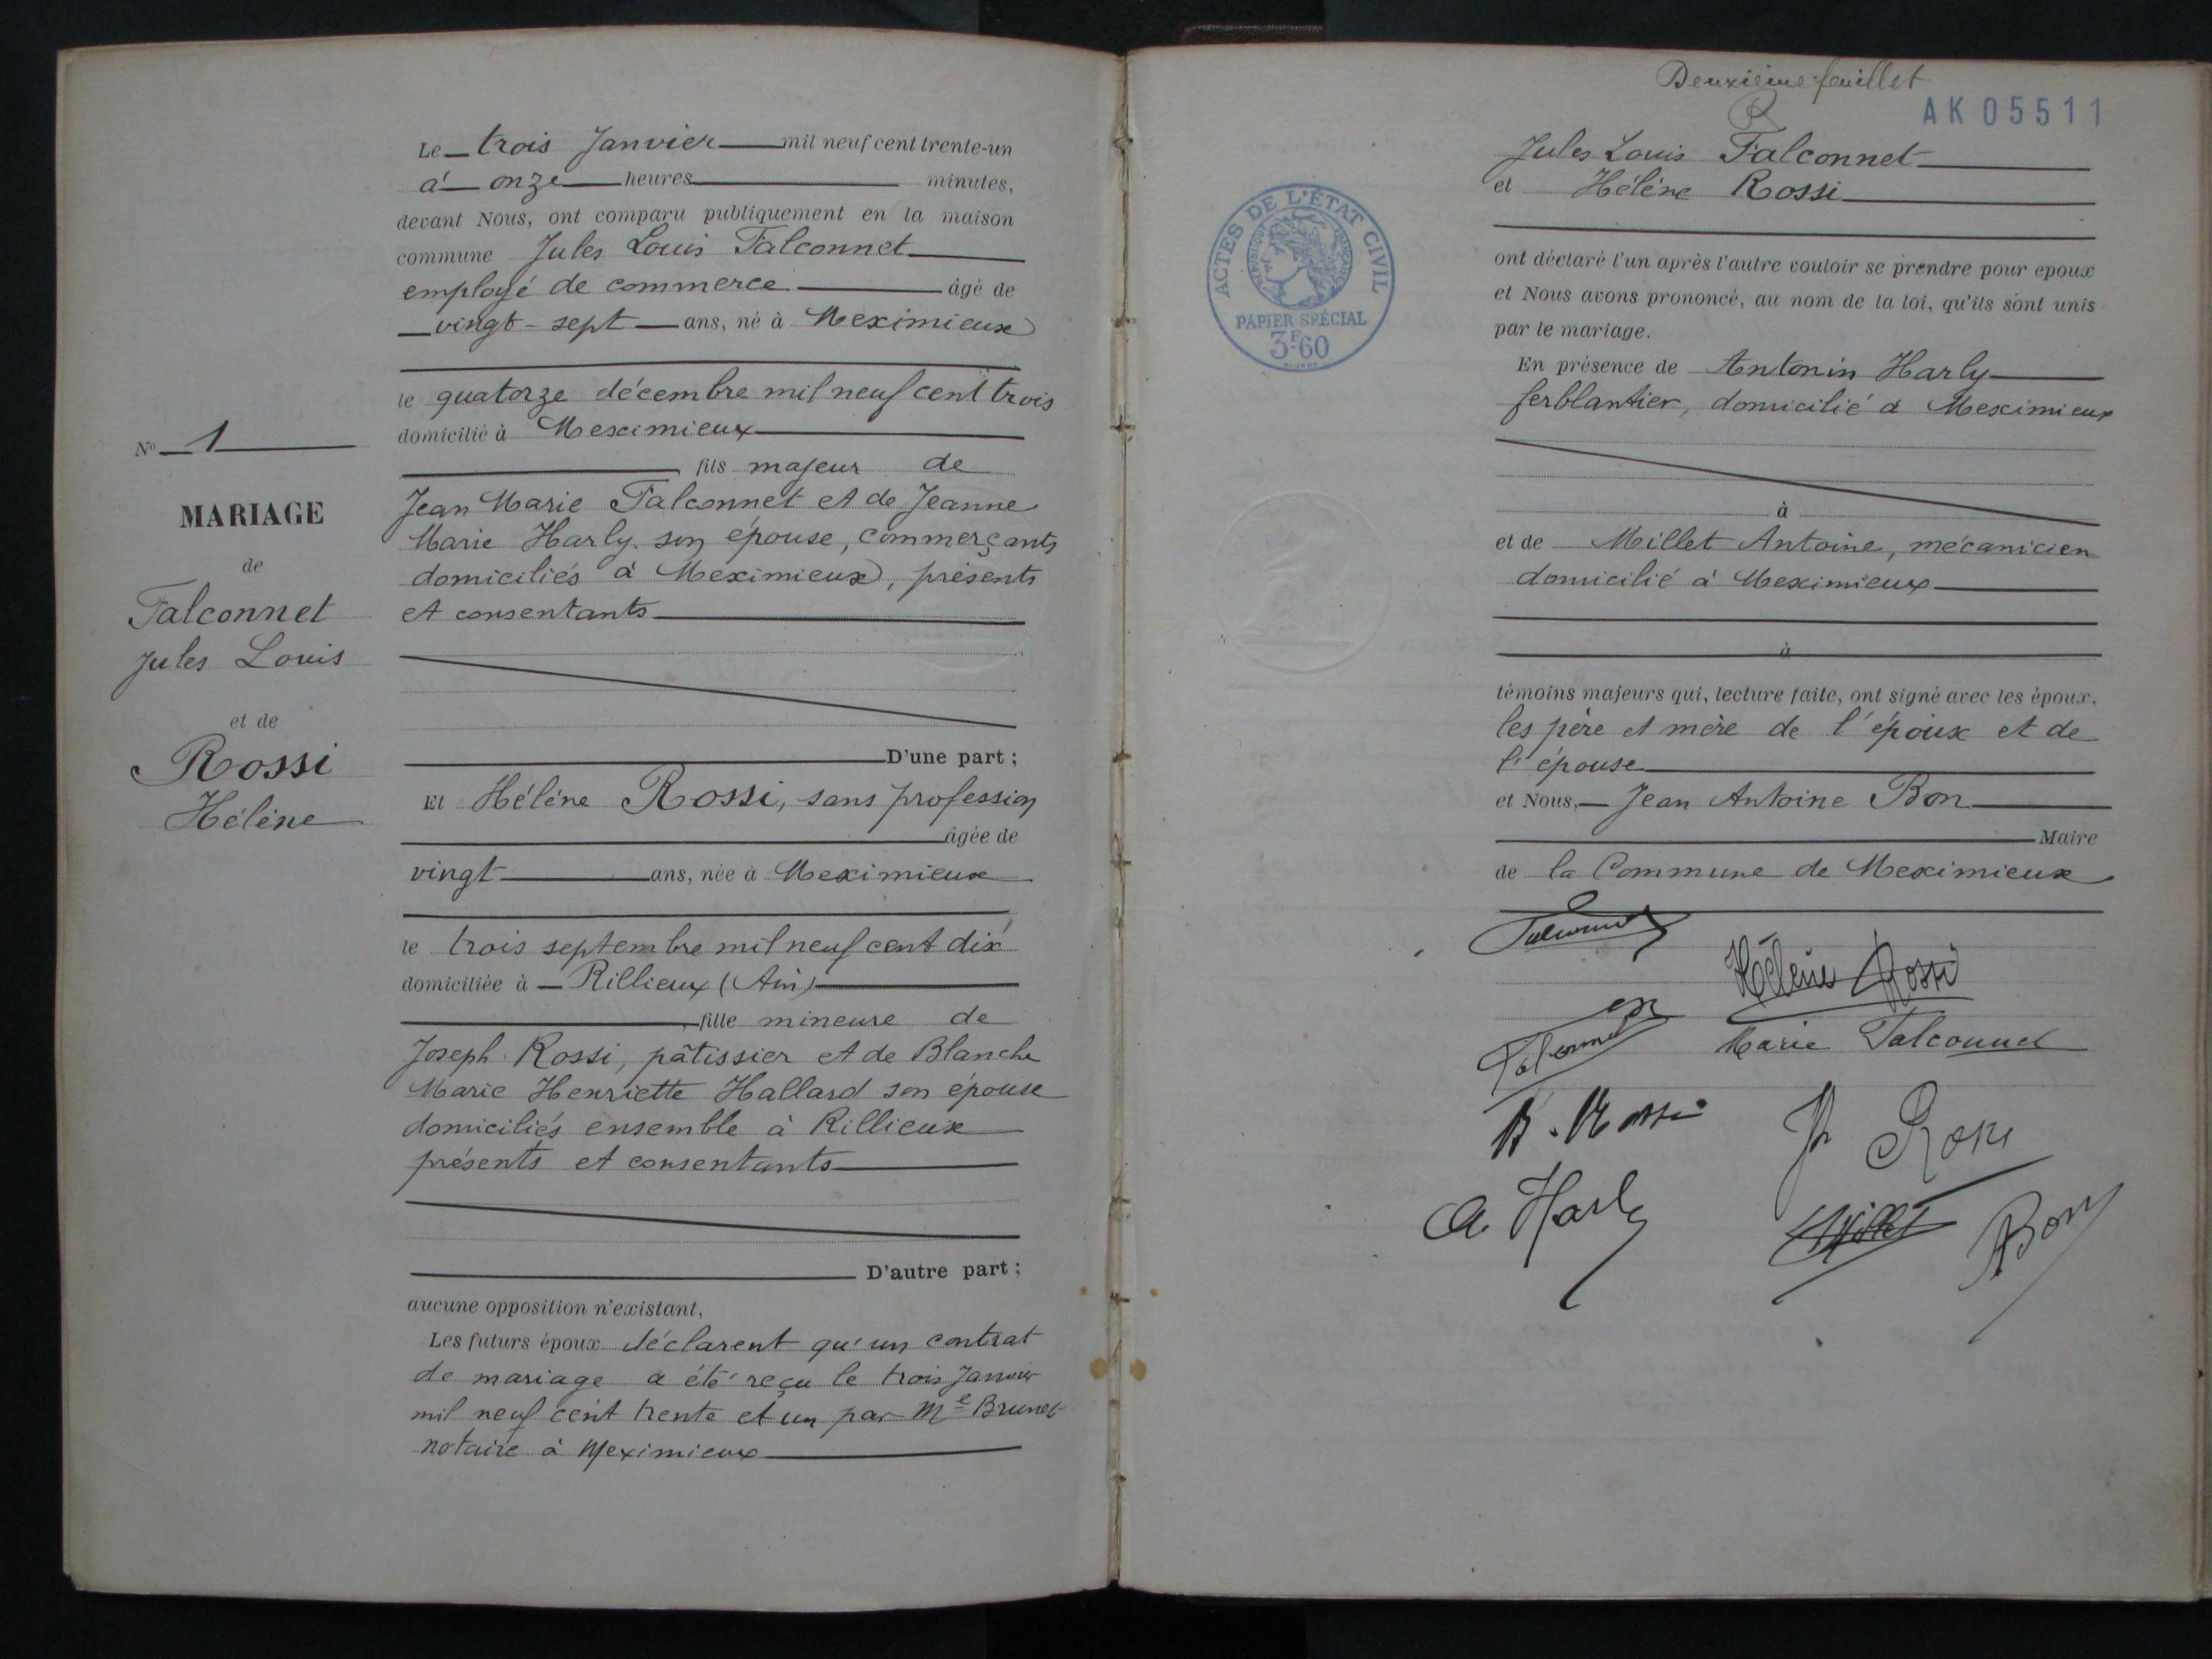 Le trois Janvier mil neuf cent trente-un
à onze heures minutes,
devant Nous, ont comparu publiquement en la maison
commune Jules Louis Falconnet
employé de commerce âgé de
vingt-sept ans, né à Meximieux
le quatorze décembre mil neuf cent trois
domicilié à Meximieux
fils majeur de
Jean Marie Falconnet et de Jeanne
Marie Harly son épouse, commerçants
domiciliés à Meximieux, présents
et consentants
D'une part ;
Et Hélène Rossi, sans profession
âgée de
vingt ans, née à Meximieux
le trois septembre mil neuf cent dix
domiciliée à Rillieux (Ain)
fille mineure de
Joseph Rossi, pâtissier et de Blanche
Marie Henriette Hallard son épouse
domiciliés ensemble à Rillieux
présents et consentants
D'autre part ;
aucune opposition n'existant,
Les futurs époux déclarent qu'un contrat
de mariage a été reçu le trois Janvier
mil neuf cent trente et un par Me Brunet
notaire à Meximieux
No 1
MARIAGE
de
Falconnet
Jules Louis
et de
Rossi
Hélène
Deuxième feuillet
AK05511
Jules Louis Falconnet
et Hélène Rossi
ont déclaré l'un après l'autre vouloir se prendre pour époux
et Nous avons prononcé, au nom de la loi, qu'ils sont unis
par le mariage.
En présence de Antonin Harly
ferblantier, domicilié à Meximieux
à
et de Millet Antoine, mécanicien
domicilié à Meximieux
à
témoins majeurs qui, lecture faite, ont signé avec les époux,
les père et mère de l'époux et de
l'épouse
et Nous, Jean Antoine Bon
Maire
de la Commune de Meximieux
Falconnet
Hélène Rossi
Falconnet
Marie Falconnet
B. Rossi
J Rossi
A Harly
Millet
Bon
ACTES DE L'ÉTAT CIVIL
RÉPUBLIQUE FRANÇAISE
PAPIER SPÉCIAL
3F60